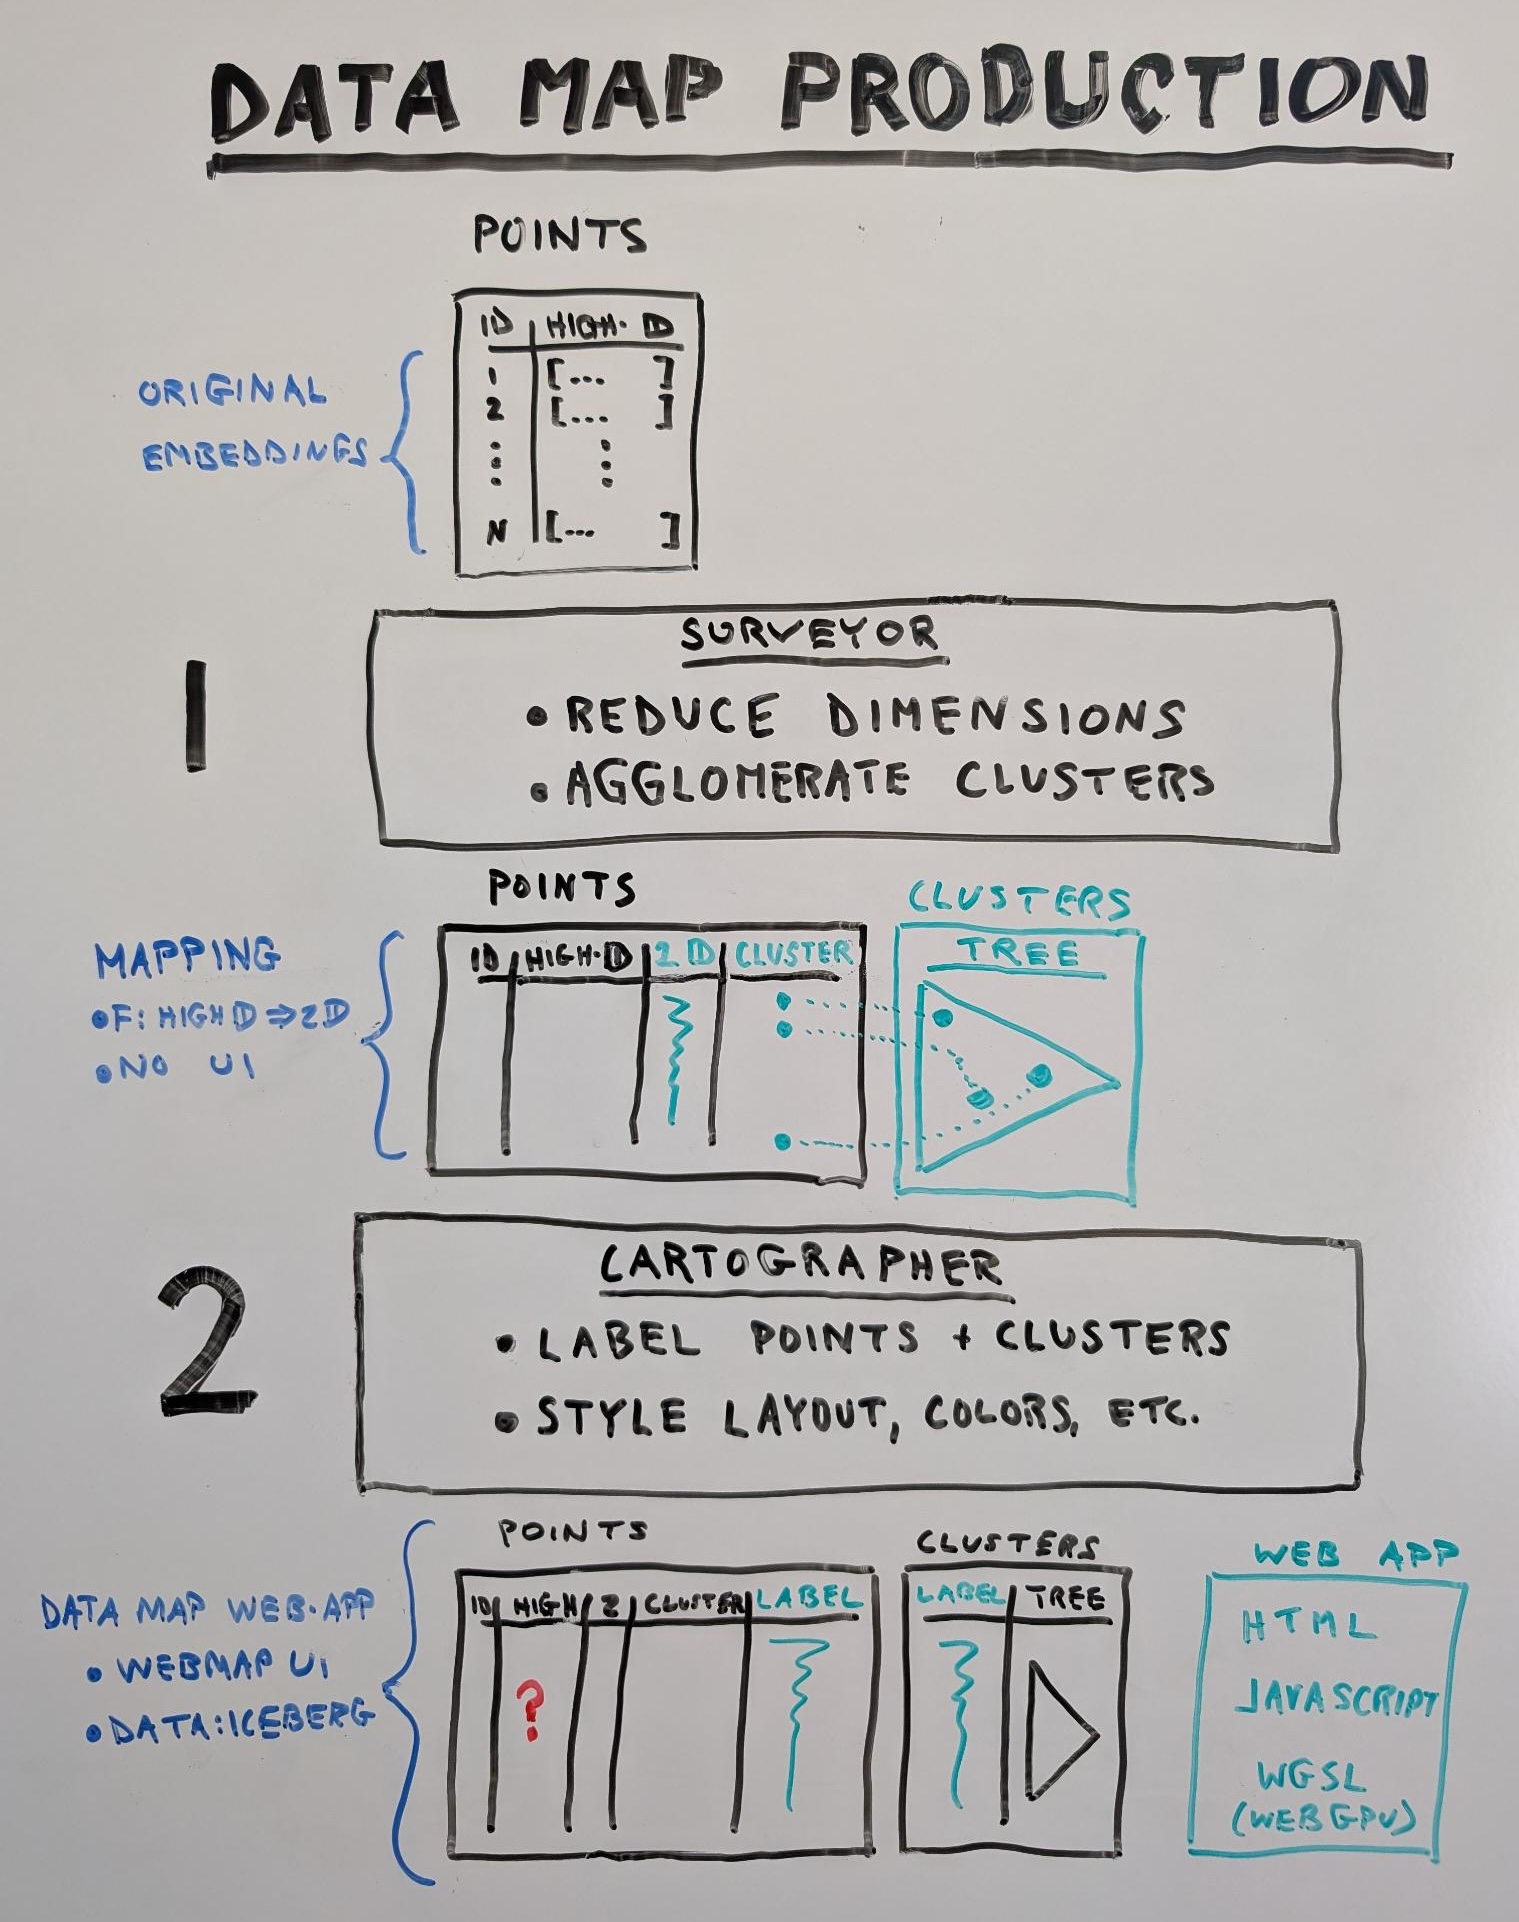 DATA MAP PRODUCTION
POINTS
ID HIGH·D
ORIGINAL
EMBEDDINGS
1 [... ]
2 [... ]
N [... ]
1
SURVEYOR
• REDUCE DIMENSIONS
• AGGLOMERATE CLUSTERS
POINTS
CLUSTERS
ID HIGH·D 2D CLUSTER
TREE
MAPPING
• F: HIGH D ⇒ 2D
• NO UI
2
CARTOGRAPHER
• LABEL POINTS + CLUSTERS
• STYLE LAYOUT, COLORS, ETC.
POINTS
CLUSTERS
WEB APP
ID HIGH 2 CLUSTER LABEL
LABEL TREE
DATA MAP WEB·APP
• WEBMAP UI
• DATA:ICEBERG
?
HTML
JAVASCRIPT
WGSL
(WEBGPU)